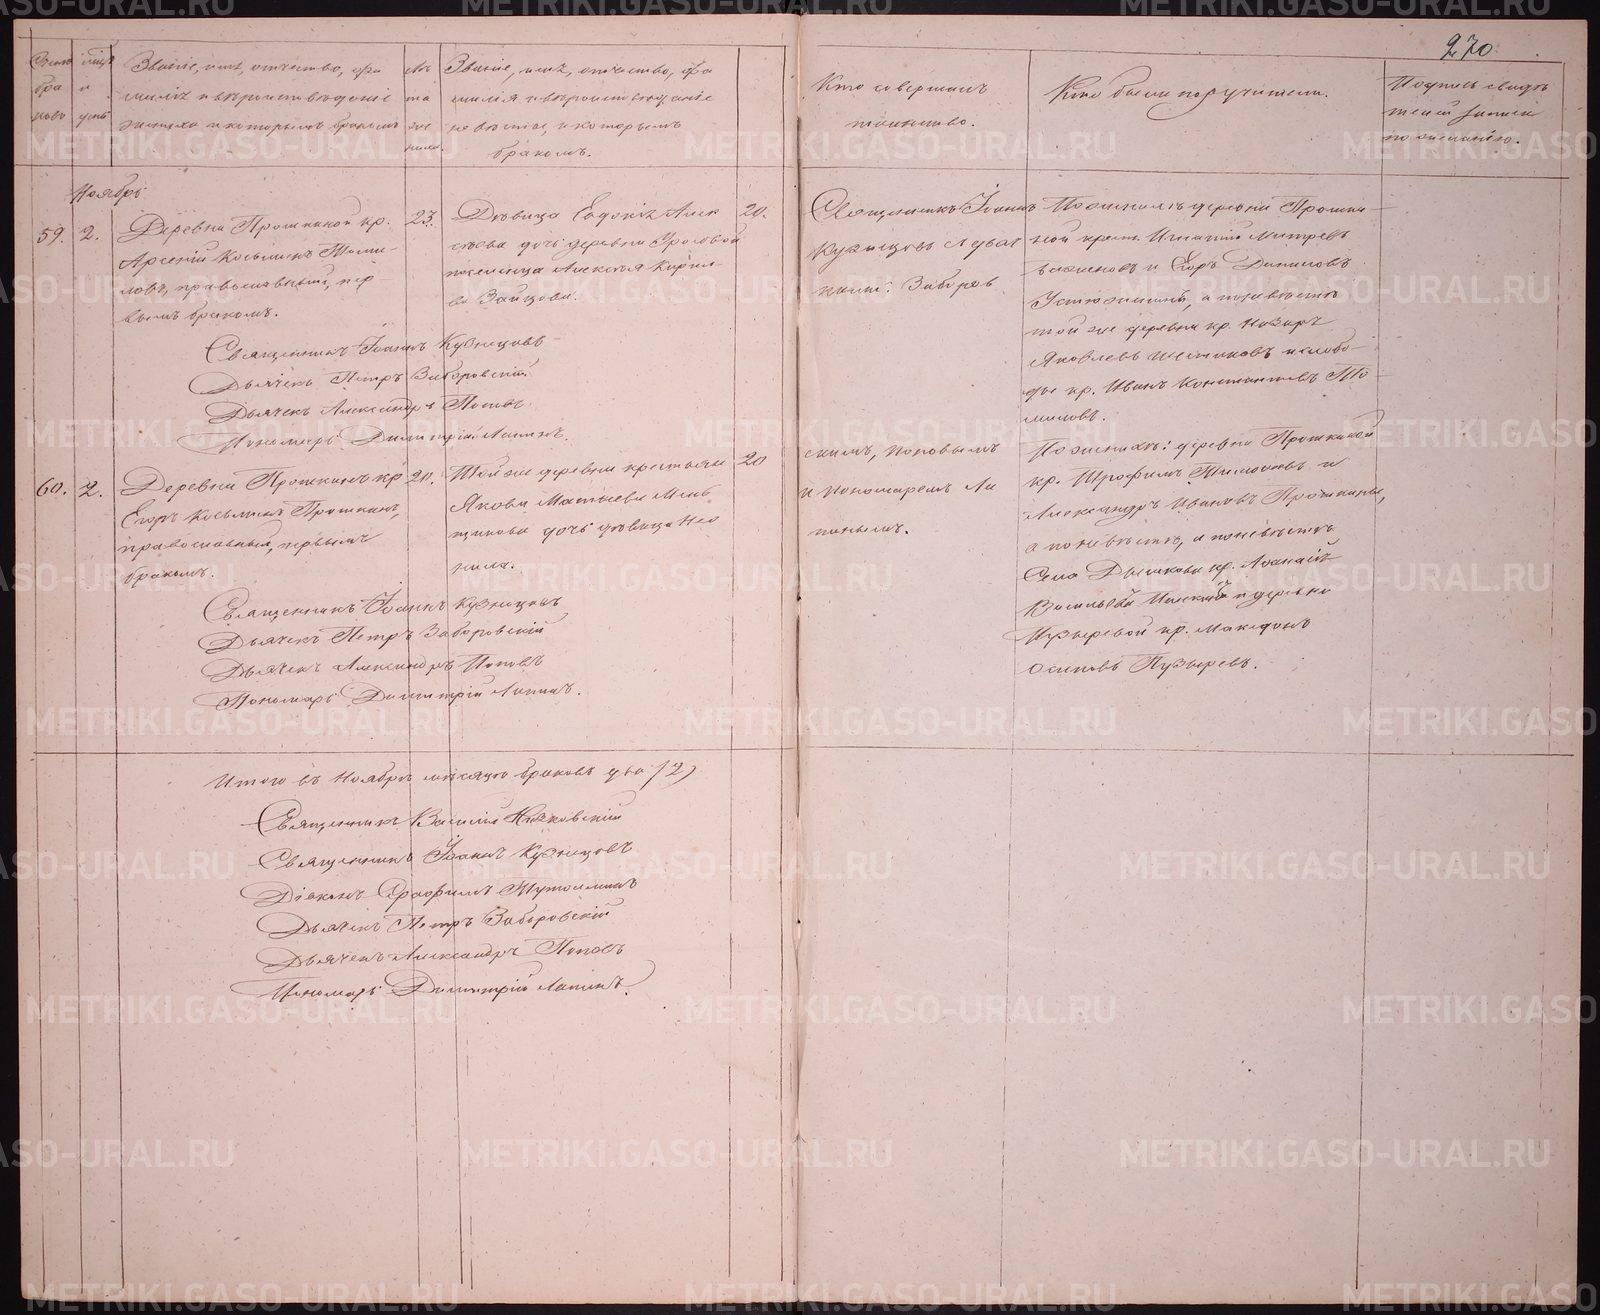 270
Счетъ бра ковъ
Мѣсяцъ и день
Званіе, имя, отчество, фа
милія и вѣроисповѣданіе
жениха и которымъ бракомъ
Лѣ та же ниха.
Званіе, имя, отчество, фа
милія и вѣроисповѣданіе
невѣсты, и которымъ
бракомъ.
Кто совершалъ
таинство.
Кто были поручители.
Подпись свидѣ
телей записи
по желанію.
Ноябрь
59. 2.
Деревни Прошкиной кр.
Арсеній Косьминъ Томи-
ловъ, православный, пер
вымъ бракомъ.
23.
Дѣвица Евдокія Алек
сѣева дочь деревни
поселенца Алексѣя Кирил-
ва Зайцова.
20.
Священникъ Іоаннъ
Кузнецовъ съ дьяч
ками: Заборов
По женихѣ деревни Прошки-
ной крест. Игнатій
и Егоръ Даниловъ
Устюжанинъ, а по невѣстѣ
той же деревни кр. Назаръ
Яковлевъ и слобо-
ды кр. Иванъ Константиновъ То
миловъ.
Священникъ Іоаннъ Кузнецовъ
Дьячекъ Петръ Заборовскій
Дьячекъ Александръ Поповъ.
Пономарь Димитрій Лапинъ.
60. 2.
Деревни Прошкиной кр
Егоръ Косьминъ Прошкинъ,
православный, первымъ
бракомъ.
20.
Той же деревни крестьян
Якова Матвѣева Мень
щикова дочь дѣвица Нео
нила.
20
скимъ, Поповымъ
и пономаремъ Ла
пинымъ.
По женихѣ: деревни Прошкиной
кр. Трофимъ и
Александръ Ивановъ Прошкины,
а по невѣстѣ, а по невѣстѣ
Села кр. Афанасій
Васильевъ и деревни
Пузыревой кр. Македонъ
Осиповъ Пузыревъ.
Священникъ Іоаннъ Кузнецовъ
Дьячекъ Петръ Заборовскій
Дьячекъ Александръ Поповъ
Пономарь Димитрій Лапинъ.
Итого въ Ноябрѣ мѣсяцѣ браковъ два (2)
Священникъ Василій
Священникъ Іоаннъ Кузнецовъ
Діаконъ Серафимъ Тутолминъ
Дьячекъ Петръ Заборовскій
Дьячекъ Александръ Поповъ
Пономарь Димитрій Лапинъ.
METRIKI.GASO-URAL.RU